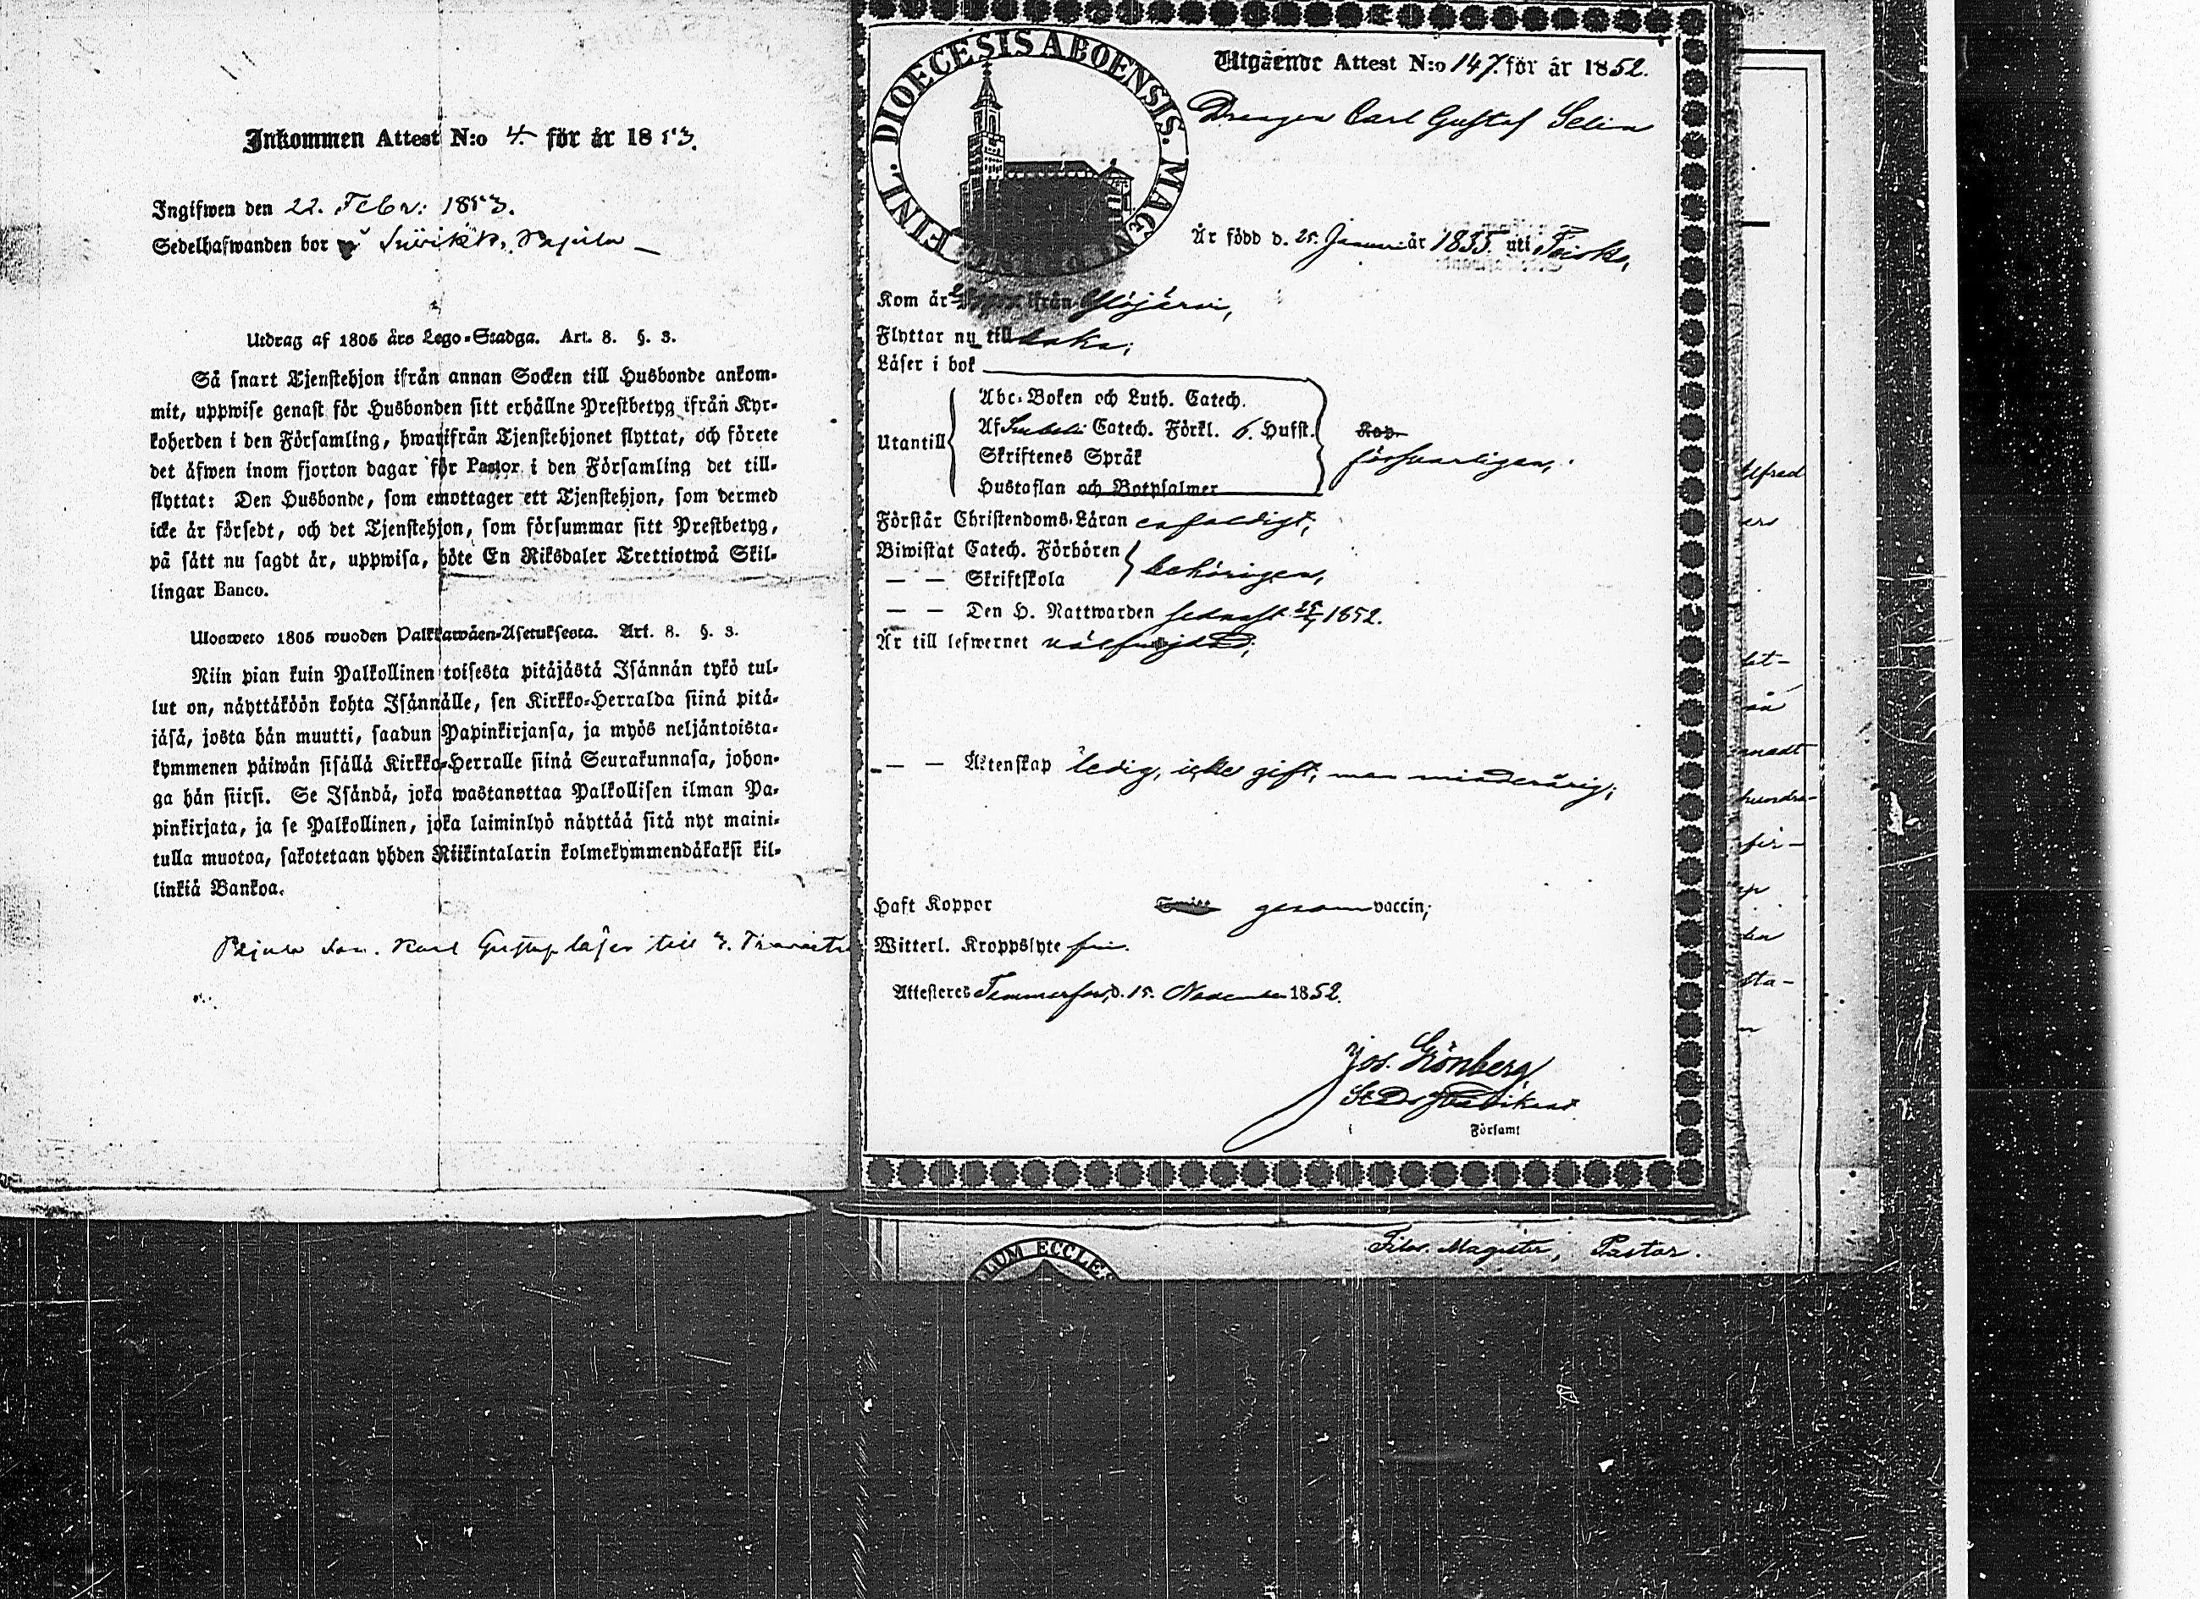 Inkommen Attest N:o 4. för år 1853.
Ingifwen den 22. Febr: 1853.
Sedelhafwanden bor
Utdrag af 1805 års Lego-Stadga. Art. 8. §. 3.
Så snart Tjenstehjon ifrån annan Socken till Husbonde ankom-
mit, uppwise genast för Husbonden sitt erhållne Prestbetyg ifrån Kyr-
koherden i den Församling, hwarifrån Tjenstehjonet flyttat, och förete
det äfwen inom fjorton dagar för Pastor i den Församling det till-
flyttat: Den Husbonde, som emottager ett Tjenstehjon, som dermed
icke är försedt, och det Tjenstehjon, som försummar sitt Prestbetyg,
på sätt nu sagdt är, uppwisa, böte En Riksdaler Trettiotwå Skil-
lingar Banco.
Ulosweto 1805 wuoden Palkkawäen-Asetuksesta. Art. 8. §. 3.
Niin pian kuin Palkollinen toisesta pitäjästä Isännän tykö tul-
lut on, näyttäköön kohta Isännälle, sen Kirkko-Herralda siinä pitä-
jäsä, josta hän muutti, saadun Papinkirjansa, ja myös neljäntoista-
kymmenen päiwän sisällä Kirkko-Herralle siinä Seurakunnasa, johon-
ga hän siirsi. Se Isändä, joka wastanottaa Palkollisen ilman Pa-
pinkirjata, ja se Palkollinen, joka laiminlyö näyttää sitä nyt maini-
tulla muotoa, sakotetaan yhden Riikintalarin kolmekymmendäkaksi kil-
linkiä Bankoa.
Karl Gustaf läser till
FINL. DIOECESIS ABOENSIS. MAGN
Utgående Attest N:o 147. för år 1852.
Drengen Carl Gustaf Selin
Är född d. 25. Januari år 1835. uti
Kom år ifrån Ylöjärvi,
Flyttar nu till baka;
Läser i bok
Utantill
Abc-Boken och Luth. Catech.
Af Catech. Förkl. 6. Hufst.
Skriftenes Språk
Hustaflan och Botpsalmer
försvarligen,
Förstår Christendoms-Läran enfaldigt;
Biwistat Catech. Förhören
— — Skriftskola
behörigen,
— — Den H. Nattwarden sednast 1852.
Är till lefwernet välfrejdad;
— — Äktenskap ledig, icke gift, men minderårig;
Haft Koppor genom vaccin;
Witterl. Kroppslyte fri.
Attesteres Tammerfors, d. 15. November 1852.
Jos. Grönberg
Församl
LUM ECCLES
Filos. Magister, Pastor.